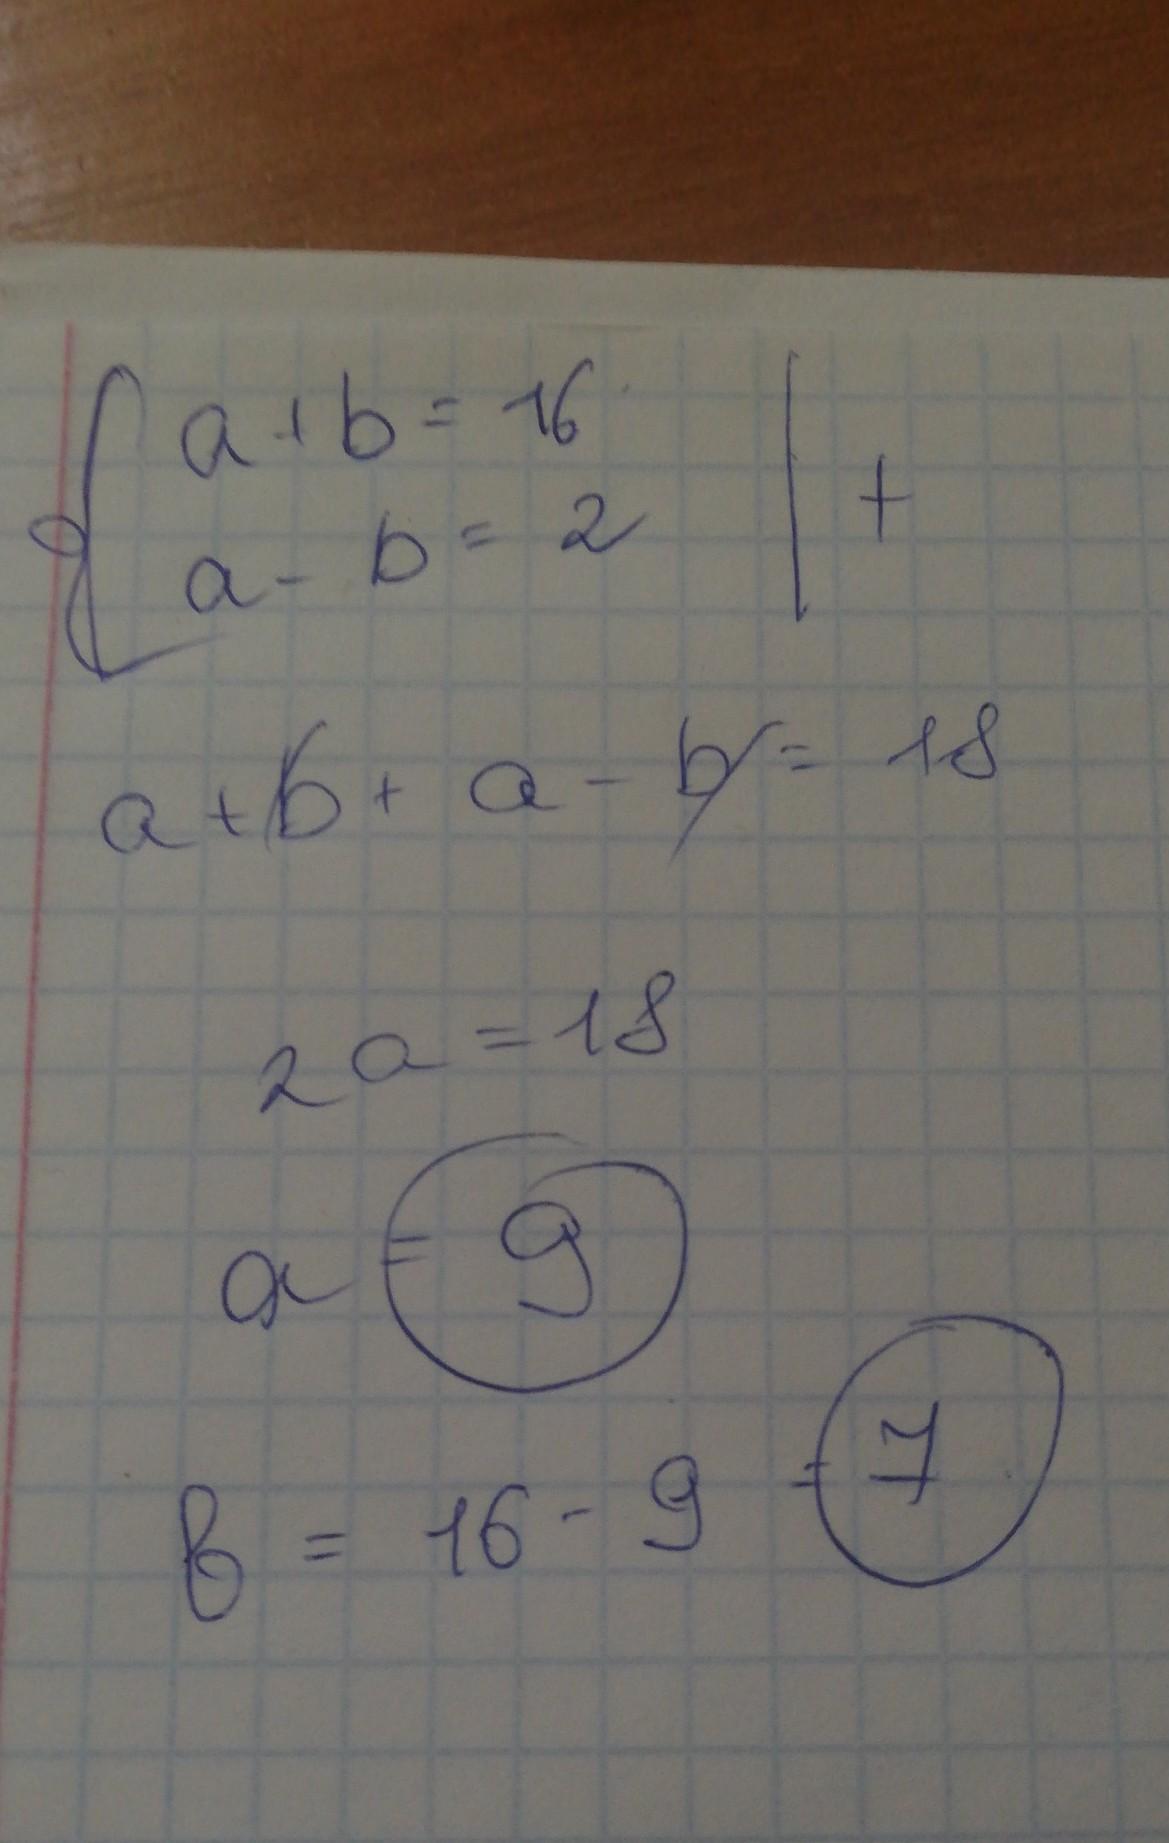 a + b = 16
a - b = 2 | +
a + b + a - b = 18
2a = 18
a = 9
b = 16 - 9 = 7